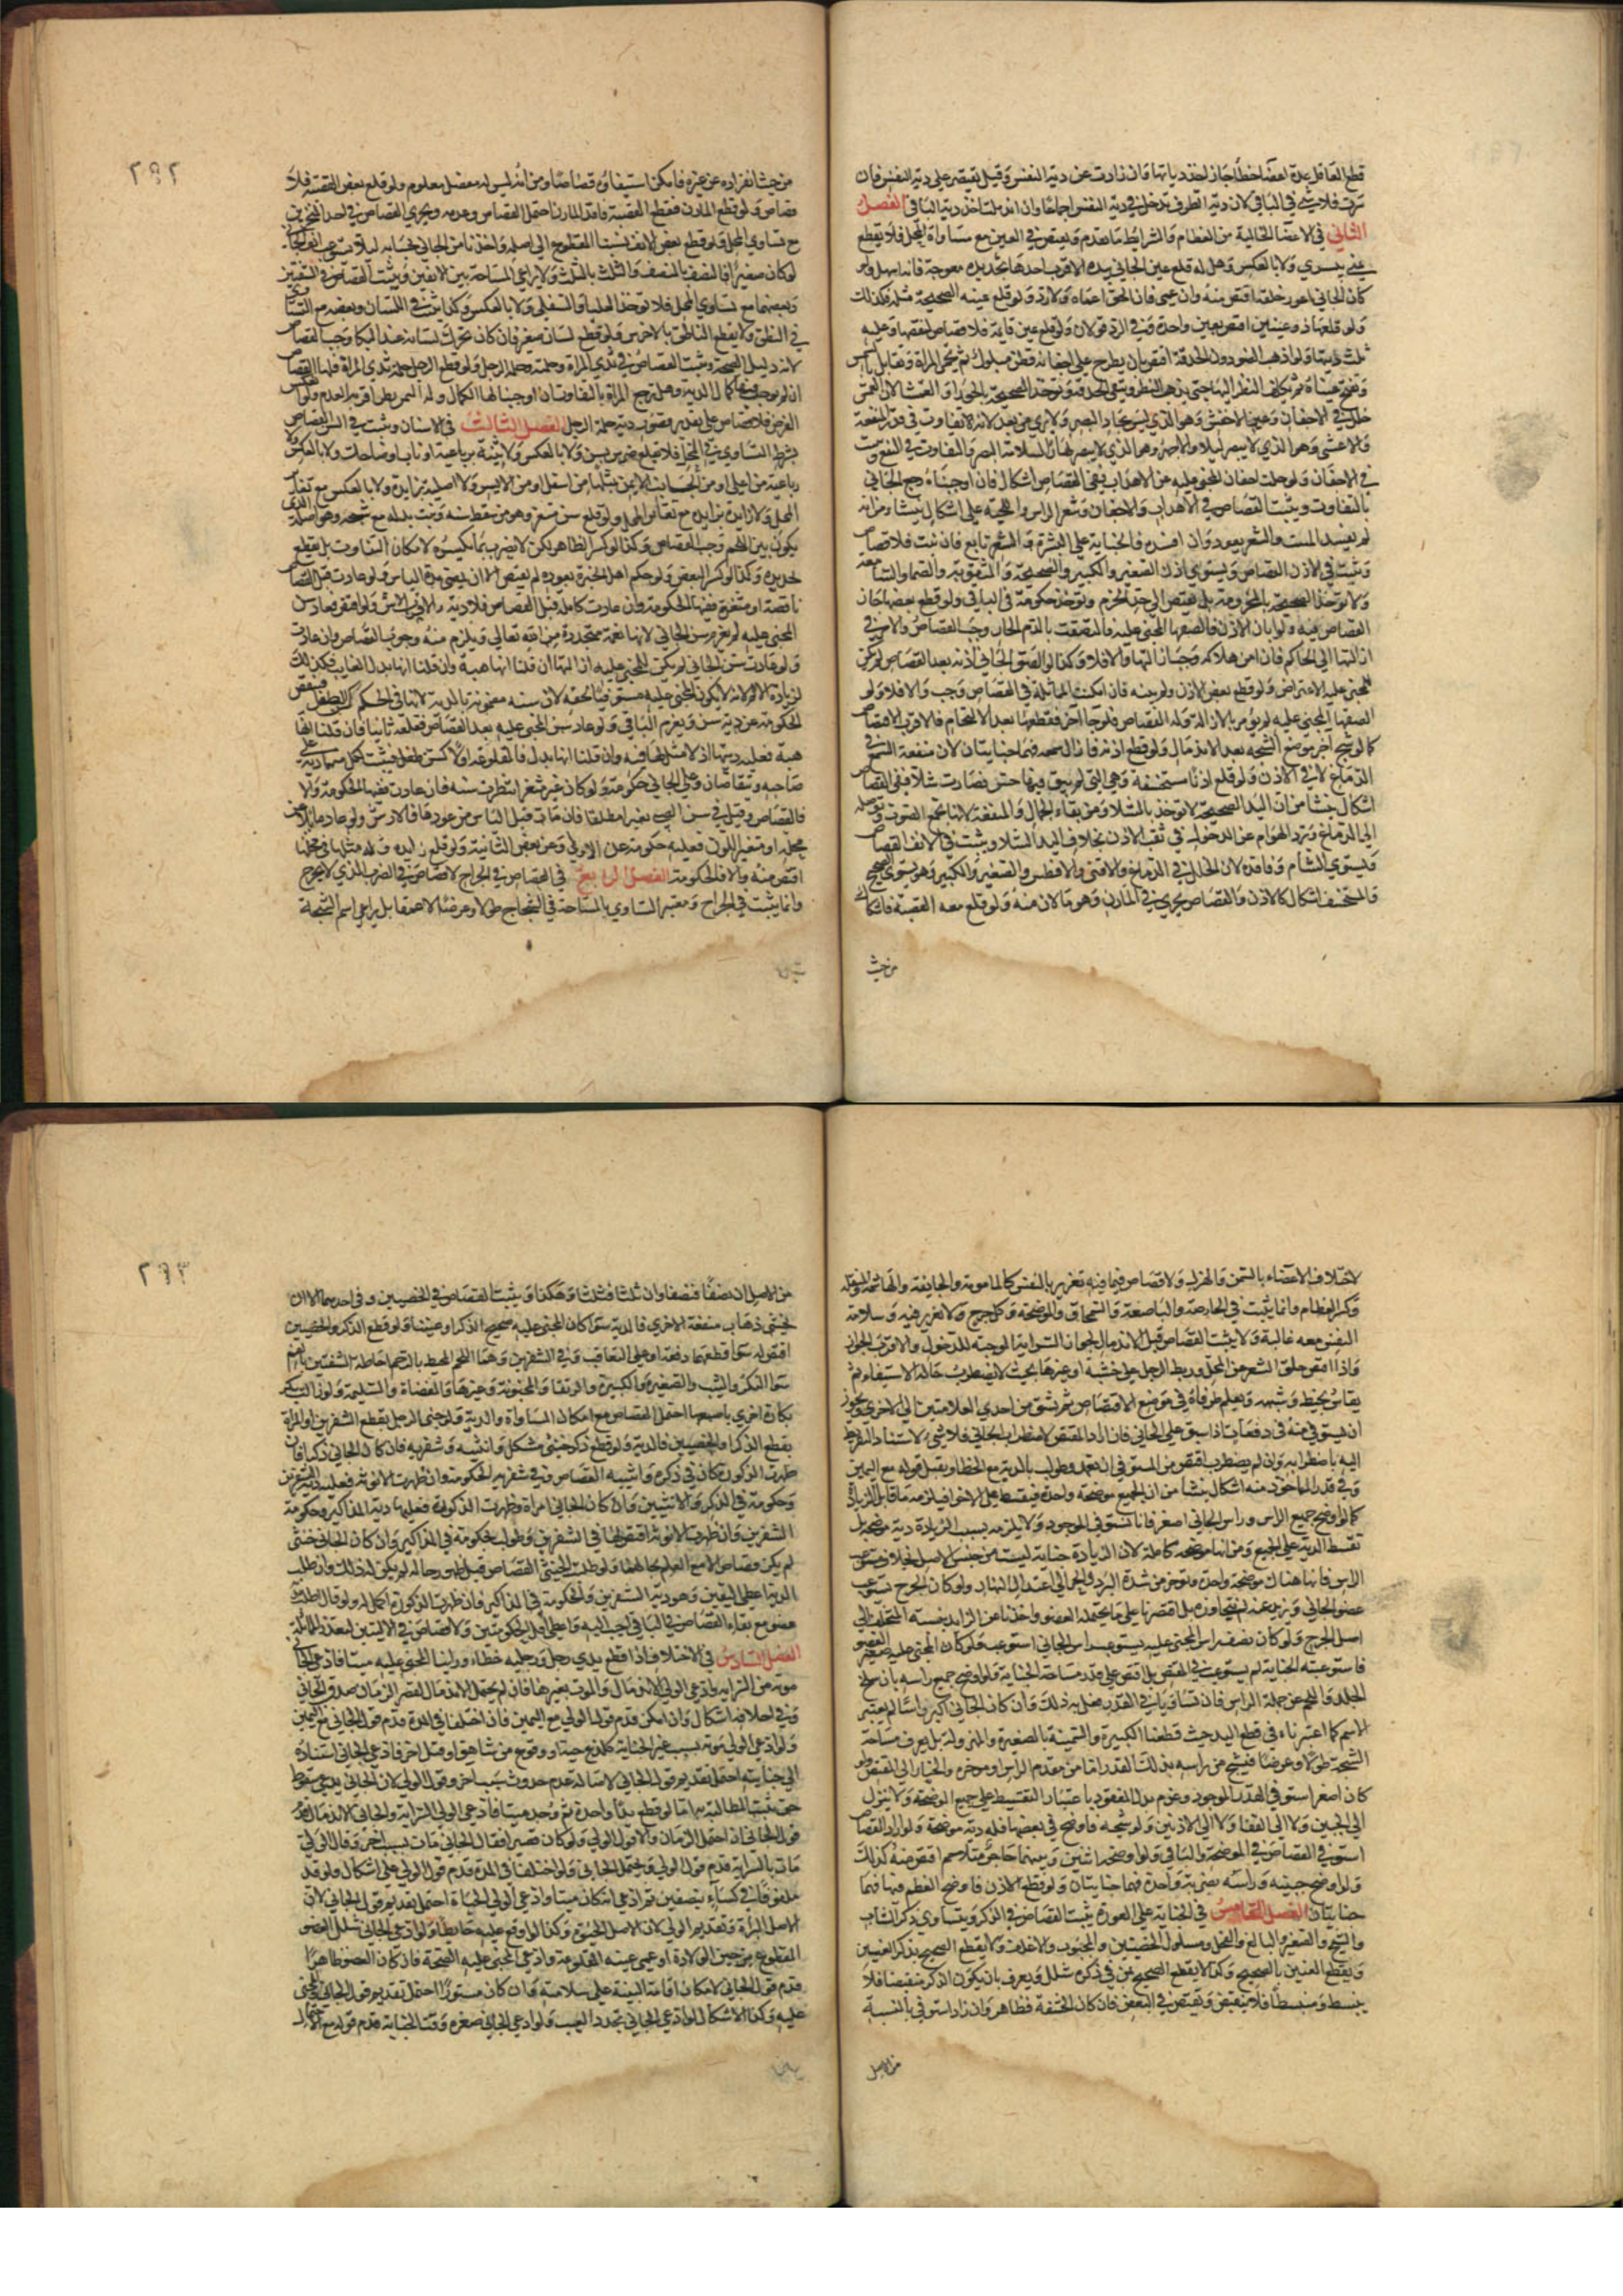 قطع القاتل عدة اعضا خطأ جاز اخذ دياتها وان زادت عن دية النفس وقيل يقتصر على دية النفس فان
سرت فلا شي في الباقي لان دية الطرف تدخل في دية النفس اجماعا وان اندملت اخذ دية الباقي الفصل
الثاني في الاعضا الخالية من العظام والشرايط ما تقدم ويقتص في العين مع مساواة المحل فلا يقطع
يمنى بيسري ولا بالعكس وهل له قلع عين الجاني بيده الاقرب اخذها بحديده معوجة فانه اسهل ولو
كان الجاني اعور خلقة اقتص منه وان عمى فان الحق اعماه ولا رد ولو قلع عينه الصحيحة مثله فكذلك
ولو قلعها ذو عينين اقتص بعين واحدة وفي الرد قولان ولو قلع عين قايمة فلا قصاص لنقصها وعليه
ثلث ديتها ولو اذهب الضو دون الحدقة اقتص بان يطرح على اجفانه قطن مبلول ثم تحمى المراة وتقابل بالشمس
وتفتح عيناه ثم يكلف النظر اليها حتى يذهب النظر وتبقى الحدقة وتوخذ الصحيحة بالحولا والعمشا لان العمش
خلل في الاجفان وعين الاخفش وهو الذي ليس بحاد البصر ولا يرى من بعد لانه لا تفاوت في قدر المنفعة
والاعشى وهو الذي لا يبصر ليلا والاجهر وهو الذي لا يبصر نهارا لسلامة البصر والتفاوت في النفع وتثبت
في الاجفان ولو خلت اجفان المجنى عليه من الاهداب ففي القصاص اشكال فان اوجبناه رجع الجاني
بالتفاوت ويثبت القصاص في الاهداب والاجفان وشعر الراس واللحية على اشكال ينشا من انه
لم يفسد المنبت والشعر يعود وان افسده فالجناية على البشرة والشعر تابع فان نبت فلا قصاص
ويثبت في الاذن القصاص ويستوي اذن الصغير والكبير والصحيحة والمثقوبة والصما والسامعة
ولا توخذ الصحيحة بالمخرومة بل يقتص الى حد الخرم وتوخذ حكومة في الباقي ولو قطع بعضها جاز
القصاص فيه ولو ابان الاذن فالصقها المجنى عليه فالتصقت بالدم الحار وجب القصاص والامر في
ازالتها الى الحاكم فان امن هلاكه وجب ازالتها والا فلا وكذا لو الصق الجاني اذنه بعد القصاص لم يكن
للمجنى عليه الاعتراض ولو قطع بعض الاذن ولم يبنه فان امكنت المماثلة في القصاص وجب والا فلا ولو
الصقها المجنى عليه لم يومر بالازالة وله القصاص فلو جا اخر فقطعها بعد الالتحام فالاقرب القصاص
كما لو شج اخر موضع الشجه بعد الاندمال ولو قطع اذنه فازال سمعه فهما جنايتان لان منفعة السمع في
الدماغ لا في الاذن ولو قلع اذنا مستحشفة وهي التي لم يبق فيها حس فصارت شلا ففي القصاص
اشكال ينشا من ان اليد الصحيحة لا توخذ بالشلا ومن بقاء الجمال والمنفعة لانها تجمع الصوت وتوصله
الى الدماغ وترد الهوام عن الدخول في ثقب الاذن بخلاف اليد الشلا ويثبت في الانف القصاص
ويستوي الشام وفاقده لان الخلل في الدماغ والاقنى والافطس والصغير والكبير وهل يستوي الصحيح
والمستحشف اشكال كالاذن والقصاص يجري في المارن وهو ما لان منه ولو قلع معه القصبة فاشكال
من حيث
٢٩٢
من حيث انفراده عن غيره فامكن استيفاوه قصاصا ومن انه ليس له مفصل معلوم ولو قلع بعض القصبة فلا
قصاص ولو قطع المارن فقطع القصبة فاقد المارن احتمل القصاص وعدمه ويجري القصاص في احد المنخرين
مع تساوي المحل ولو قطع بعض الانف نسبنا المقطوع الى اصله واخذنا من الجاني بحسابه ليلا يستوعب انف الجاني
لو كان صغيرا فالنصف بالنصف والثلث بالثلث ولا يراعى المساحة بين الانفين ويثبت القصاص في الشفتين
وبعضهما مع تساوي المحل فلا توخذ العليا بالسفلى ولا بالعكس وكذا يثبت في اللسان وبعضه مع التساوي
في النطق ولا يقطع الناطق بالاخرس ولو قطع لسان صغير فان كان تحرك لسانه عند البكا وجب القصاص
لانه دليل الصحة ويثبت القصاص في ثدي المراة وحلمته وحلمة الرجل ولو قطع الرجل حلمة ثدي المراة فلها القصاص
ان لم نوجب فيهما كمال الدية وهل ترجع المراة بالتفاوت ان اوجبنا لها الكمال وله النصف نظر اقربه العدم ولو انعكس
الفرض فلا قصاص على تقدير قصور دية حلمة الرجل الفصل الثالث في الاسنان ويثبت في السن القصاص
بشرط التساوي في المحل فلا يقلع ضرس بسن ولا بالعكس ولا ثنية برباعية او ناب او ضاحك ولا بالعكس ولا
رباعية من اعلى او من الجانب الايمن بمثلها من اسفل او من الايسر ولا اصلية بزايدة ولا بالعكس مع تغاير
المحل ولا زايدة بزايدة مع تغاير المحل ولو قلع سن مثغر وهو من سقط سنه ونبت بدله مع سنخه وهو اصله الذي
يكون بين اللحم وجب القصاص وكذا لو كسر الظاهر لكن لا يضرب بما يكسره لامكان التفاوت بل يقطع
بحديده وكذا لو كسر البعض ولو حكم اهل الخبرة بعوده لم يقتص الا ان يمضي مدة الياس ولو عادت قبل القصاص
ناقصة او متغيرة ففيها الحكومة وان عادت كاملة قبل القصاص فلا دية والاقرب الارش ولو اقتص فعاد سن
المجنى عليه لم يغرم سن الجاني لانها نعمة متجددة من الله تعالى ويلزم منه وجوب القصاص وان عادت
ولو عادت سن الجاني لم يكن للمجنى عليه ازالتها ان قلنا انها هبة وان قلنا انها بدل الفايت فكذلك
لزيادة الالم لانه لا يكون المجنى عليه مستوفيا لحقه لان سنه مضمونة بالدية لانها في الحكم كسن الطفل فينقص
الحكومة عن دية سن ويغرم الباقي ولو عاد سن المجنى عليه بعد القصاص فقلعه ثانيا فان قلنا انها
هبة فعليه ديتها اذ لا مثل لها فيه وان قلنا انها بدل فالمقلوعة اولا كسن طفل فيثبت لكل منهما دية على
صاحبه ويتقاصان وعلى الجاني حكومة ولو كان غير مثغر انتظرت سنه فان عادت ففيها الحكومة والا
فالقصاص وقيل في سن الصبي بعير مطلقا فان مات قبل الياس من عودها فالارش ولو عاد مايلا عن
محله او متغير اللون فعليه حكومة عن الاولى وعن نقص الثانية ولو قلع زايدة وله مثلها في محلها
اقتص منه والا فالحكومة الفصل الرابع في القصاص في الجراح لا قصاص في الضرب الذي لا يجرح
وانما يثبت في الجراح ويعتبر التساوي بالمساحة في الشجاج طولا وعرضا لا عمقا بل يراعى اسم الشجة
لاختلاف الاعضاء بالسمن والهزال ولا قصاص فيما فيه تغرير بالنفس كالمامومة والجايفة والهاشمة والمنقلة
وكسر العظام وانما يثبت في الحارصة والباضعة والسمحاق والموضحة وكل جرح لا تغرير فيه وسلامة
النفس معه غالبة ولا يثبت القصاص قبل الاندمال لجواز السراية الموجبة للدخول والاقرب الجواز
واذا اقتص حلق الشعر من المحل وربط الرجل على خشبة او غيرها بحيث لا يضطرب حالة الاستيفاء ثم
يقاس بخيط وشبهه ويعلم طرفاه في موضع الاقتصاص ثم يشق من احدى العلامتين الى الاخرى ويجوز
ان يستوفى منه في دفعات اذا شق على الجاني فان زاد المقتص لاضطراب الجاني فلا شي لاستناد التفريط
اليه باضطرابه وان لم يضطرب اقتص من المستوفي ان تعمد وطولب بالدية مع الخطا ويقبل قوله مع اليمين
وفي قدر الماخوذ منه اشكال ينشا من ان الجميع موضحة واحدة فيتقسط على الاجزا فيلزمه ما قابل الزيادة
كما لو اوضح جميع الراس وراس الجاني اصغر فانا نستوفي الموجود ولا يلزمه بسبب الزيادة دية موضحة بل
تقسط الدية على الجميع ومن انها موضحة كاملة لان الزيادة جناية ليست من جنس الاصل بخلاف مستوعب
الراس فانها هناك موضحة واحدة ويوخر من شدة البرد والحر الى اعتدال النهار ولو كان الجرح يستوعب
عضو الجاني ويزيد عنه لم نتجاوزه بل اقتصرنا على ما يحتمله العضو واخذنا عن الزايد بنسبة المتخلف الى
اصل الجرح ولو كان نصف راس المجنى عليه يستوعب راس الجاني استوعب ولو كان المجنى عليه صغير العضو
فاستوعبته الجناية لم يستوعب في المقتص بل اقتص على قدر مساحة الجناية ولو اوضح جميع راسه بان سلخ
الجلد واللحم عن جملة الراس فان تساويا في القدر فعل به ذلك وان كان الجاني اكبر راسا لم يعتبر
الاسم كما اعتبرناه في قطع اليد حيث قطعنا الكبيرة والسمينة بالصغيرة والمهزولة بل يعرف مساحة
الشجة طولا وعرضا فيشج من راسه بذلك القدر اما من مقدم الراس او موخره والخيار الى المقتص ولو
كان اصغر استوفى القدر الموجود وغرم بدل المفقود باعتبار التقسيط على جميع الموضحة ولا ينزل
الى الجبين ولا الى القفا ولا الى الاذنين ولو شجه فاوضح في بعضها فله دية موضحة ولو اراد القصاص
استوفى القصاص في الموضحة والباقي ولو اوضحه اثنتين وبينهما حاجز متلاحم اقتص منه كذلك
ولو اوضح جبينه وراسه بضربة واحدة فهما جنايتان ولو قطع الاذن فاوضح العظم منها فهما
جنايتان الفصل الخامس في الجناية على العورة يثبت القصاص في الذكر ويتساوي ذكر الشاب
والشيخ والصغير والبالغ والفحل ومسلول الخصيتين والمجبوب والاغلف ولا يقطع الصحيح بذكر العنين
ويقطع العنين بالصحيح وكذا لا يقطع الصحيح بمن في ذكره شلل ويعرف بان يكون الذكر منقبضا فلا
ينبسط ومنبسطا فلا ينقبض ويقتص في البعض فان كان الحشفة فظاهر وان زاد استوفى بالنسبة
من الاصل
٢٩٣
من الاصل ان نصفا فنصفا وان ثلثا فثلثا وهكذا ويثبت القصاص في الخصيتين وفي احديهما الا ان
يخشى ذهاب منفعة الاخرى فالدية سوا كان المجنى عليه صحيح الذكر او عنينا ولو قطع الذكر والخصيتين
اقتص له سوا قطعهما دفعة او على التعاقب وفي الشفرين وهما اللحم المحيط بالرحم احاطة الشفتين بالفم
سوا البكر والثيب والصغيرة والكبيرة والرتقا والمجنونة وغيرها والمفضاة والسليمة ولو ازالت بكر
بكارة اخرى باصبعها احتمل القصاص مع امكان المساواة والدية ولو جنى الرجل بقطع الشفرين او المراة
بقطع الذكر او الخصيتين فالدية ولو قطع ذكر خنثى مشكل وانثييه وشفريه فان كان الجاني ذكرا فان
ظهرت الذكورة كان في ذكره وانثييه القصاص وفي شفريه الحكومة وان ظهرت الانوثة فعليه دية الشفرين
وحكومة في الذكر والانثيين وان كان الجاني امراة وظهرت الذكورة فعليها دية المذاكير وحكومة
الشفرين وان ظهرت الانوثة اقتص لها في الشفرين وطولب بحكومة في المذاكير وان كان الجاني خنثى
لم يكن قصاص الا مع العلم بحالهما ولو طلب الخنثى القصاص قبل ظهور حاله لم يكن له ذلك وان طلب
الدية اعطي اليقين وهو دية الشفرين والحكومة في المذاكير فان ظهرت الذكورة اكمل له ولو قال اطلب دية
عضو مع بقاء القصاص في الباقي لم يجب اليه واعطي اقل الحكومتين ولا قصاص في الاليتين لتعذر المماثلة
الفصل السادس في الاختلاف اذا قطع يدي رجل ورجليه خطاء وراينا المجنى عليه ميتا فادعى الجاني
موته من السراية وادعى الولي الاندمال والموت بغيرها فان لم يحتمل الاندمال لقصر الزمان صدق الجاني
وفي احلافه اشكال وان امكن قدم قول الولي مع اليمين فان اختلفا في المدة قدم قول الجاني مع اليمين
ولو ادعى الولي موته بسبب غير الجناية كلدغ حية او وقوع من شاهق او قتل اخر فادعى الجاني استناده
الى جنايته احتمل تقديم قول الجاني لاصالة عدم حدوث سبب اخر وقول الولي لان الجاني يدعي سقوط
حق يثبت المطالبة به اما لو قطع يدا واحدة ثم وجد ميتا فادعى الولي السراية والجاني الاندمال قدم
قول الجاني ان احتمل الزمان والا قول الولي ولو كان قصيرا فقال الجاني مات بسبب اخر وقال الولي
مات بالسراية قدم قول الولي ويحتمل الجاني ولو اختلفا في المدة قدم قول الولي على اشكال ولو قد
ملفوفا في كساء بنصفين ثم ادعى انه كان ميتا وادعى الولي الحياة احتمل تقديم قول الجاني لان
الاصل البراة وتقديم الولي لان الاصل الحيوة وكذا لو اوقع عليه حايطا ولو ادعى الجاني شلل العضو
المقطوع من حين الولادة او عمى عينه المقلوعة وادعى المجنى عليه الصحة فان كان العضو ظاهرا
قدم قول الجاني لامكان اقامة البينة على سلامته وان كان مستورا احتمل تقديم قول الجاني والمجنى
عليه وكذا الاشكال لو ادعى الجاني تجدد العيب ولو ادعى الجاني صغره وقت الجناية قدم قوله مع الامكان